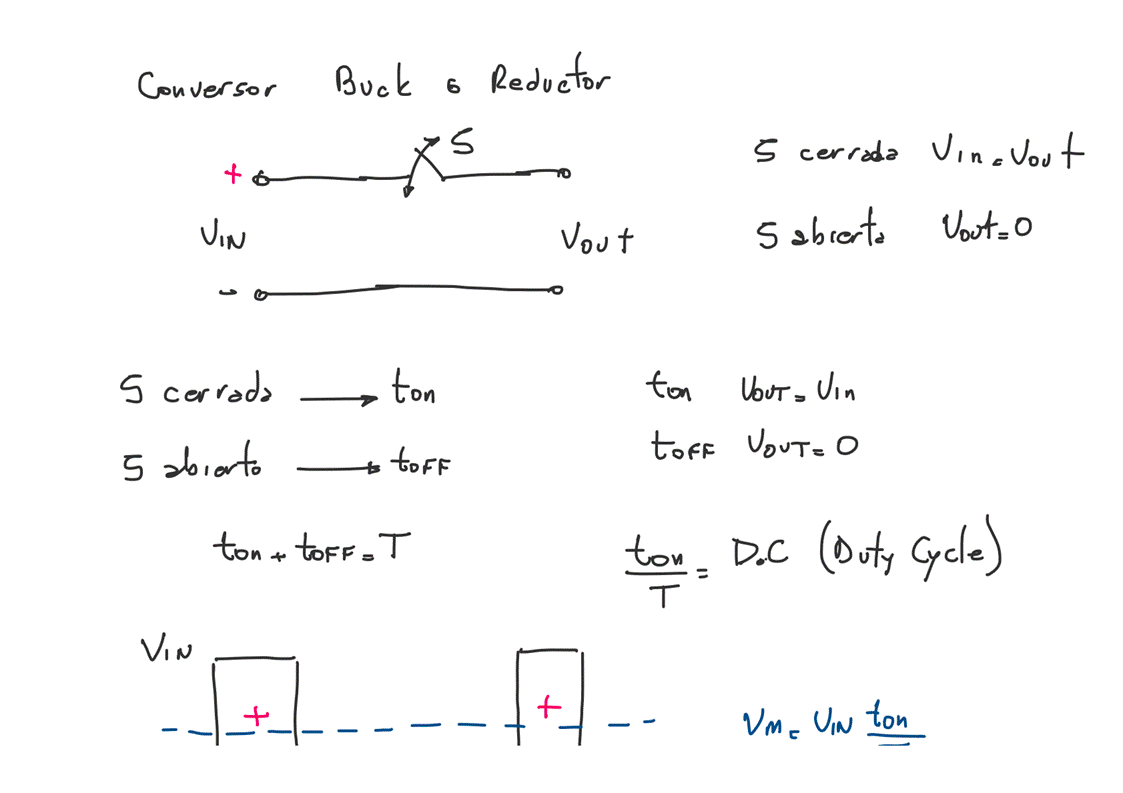 Conversor Buck o Reductor
+ S
S cerrado Vin = Vout
VIN Vout
S abierto Vout = 0
-
S cerrado → ton
ton VOUT = Vin
S abierto → tOFF
tOFF VOUT = 0
ton + tOFF = T
ton/T = D.C (Duty Cycle)
VIN
+ +
VM = VIN ton